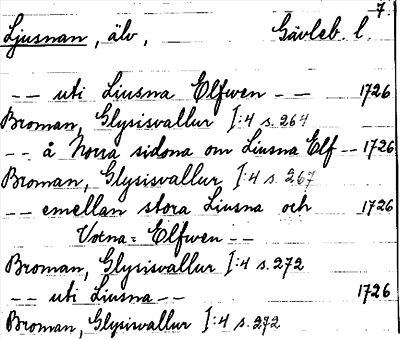 7.
Ljusnan, älv, Gävleb. l.
-- uti Liusna Elfwen -- 1726
Broman, Glysisvallur I:4 s. 264
-- å Norra sidona om Liusna Elf -- 1726
Broman, Glysisvallur I:4 s. 267
-- emellan stora Liusna och 1726
Voxna= Elfwen --
Broman, Glysisvallur I:4 s. 272
-- uti Liusna -- 1726
Broman, Glysisvallur I:4 s. 292